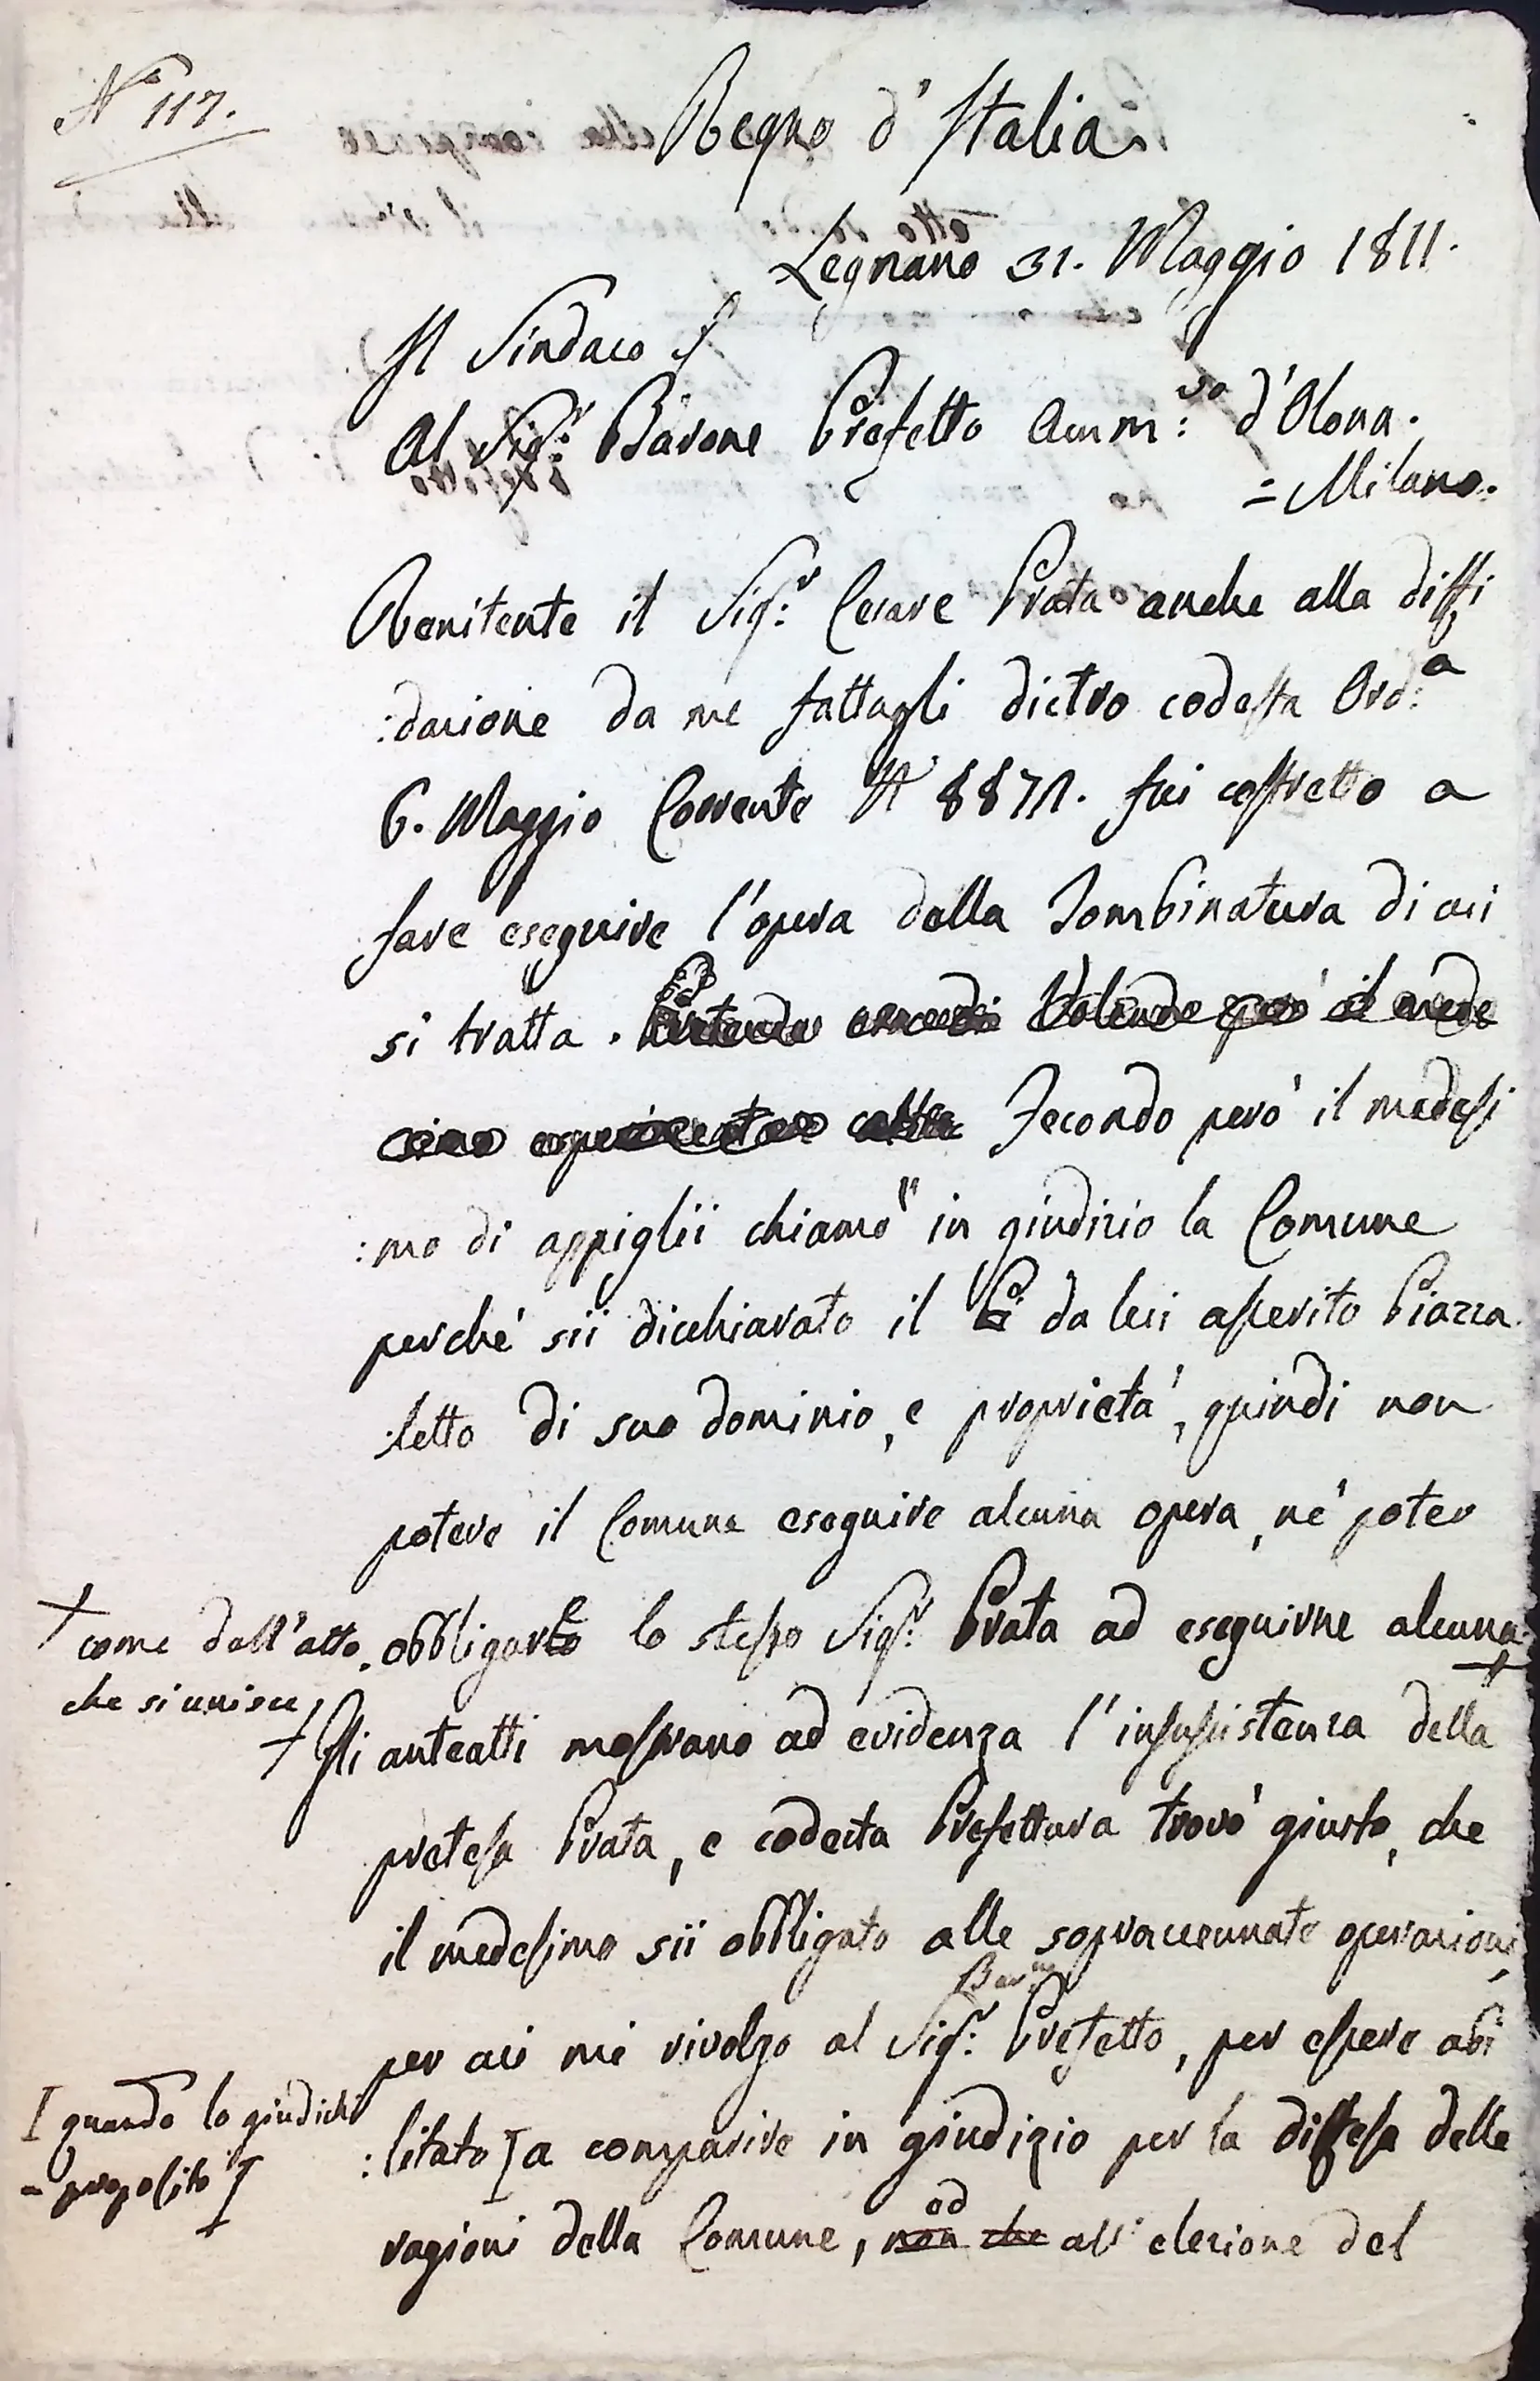 N.° 117.
Regno d'Italia.
Legnano 31. Maggio 1811.
Il Sindaco
Al Sig.r Barone Prefetto Amm:vo d'Olona.
= Milano.
Renitente il Sig:r Cesare Prata anche alla diffi
:dazione da me fattagli dietro codesta Ord:a
6. Maggio Corrente N° 8871. fui costretto a
fare eseguire l'opera della Tombinatura di cui
si tratta. Volendo però il mede
simo Secondo però il medesi
:mo di appiglii chiamò in giudizio la Comune
perchè sii dicchiarato il da lui asserito Piazza
:letto di suo dominio, e proprietà, quindi non
potere il Comune eseguire alcuna opera, nè poter
obbligare lo stesso Sig:r Prata ad eseguirne alcuna +
+ come dall'atto
che si unisce,
+ Gli anteatti mostrano ad evidenza l'insussistenza della
pretesa Prata, e codesta Prefettura trovò giusto, che
il medesimo sii obbligato alle sopraccennate operazioni,
per cui mi rivolgo al Sig:r Bar.ne Prefetto, per essere abi
:litato I a comparire in giudizio per la difesa delle
I quando lo giudichi
- proposito I
ragioni della Comune, non che ad all'elezione del